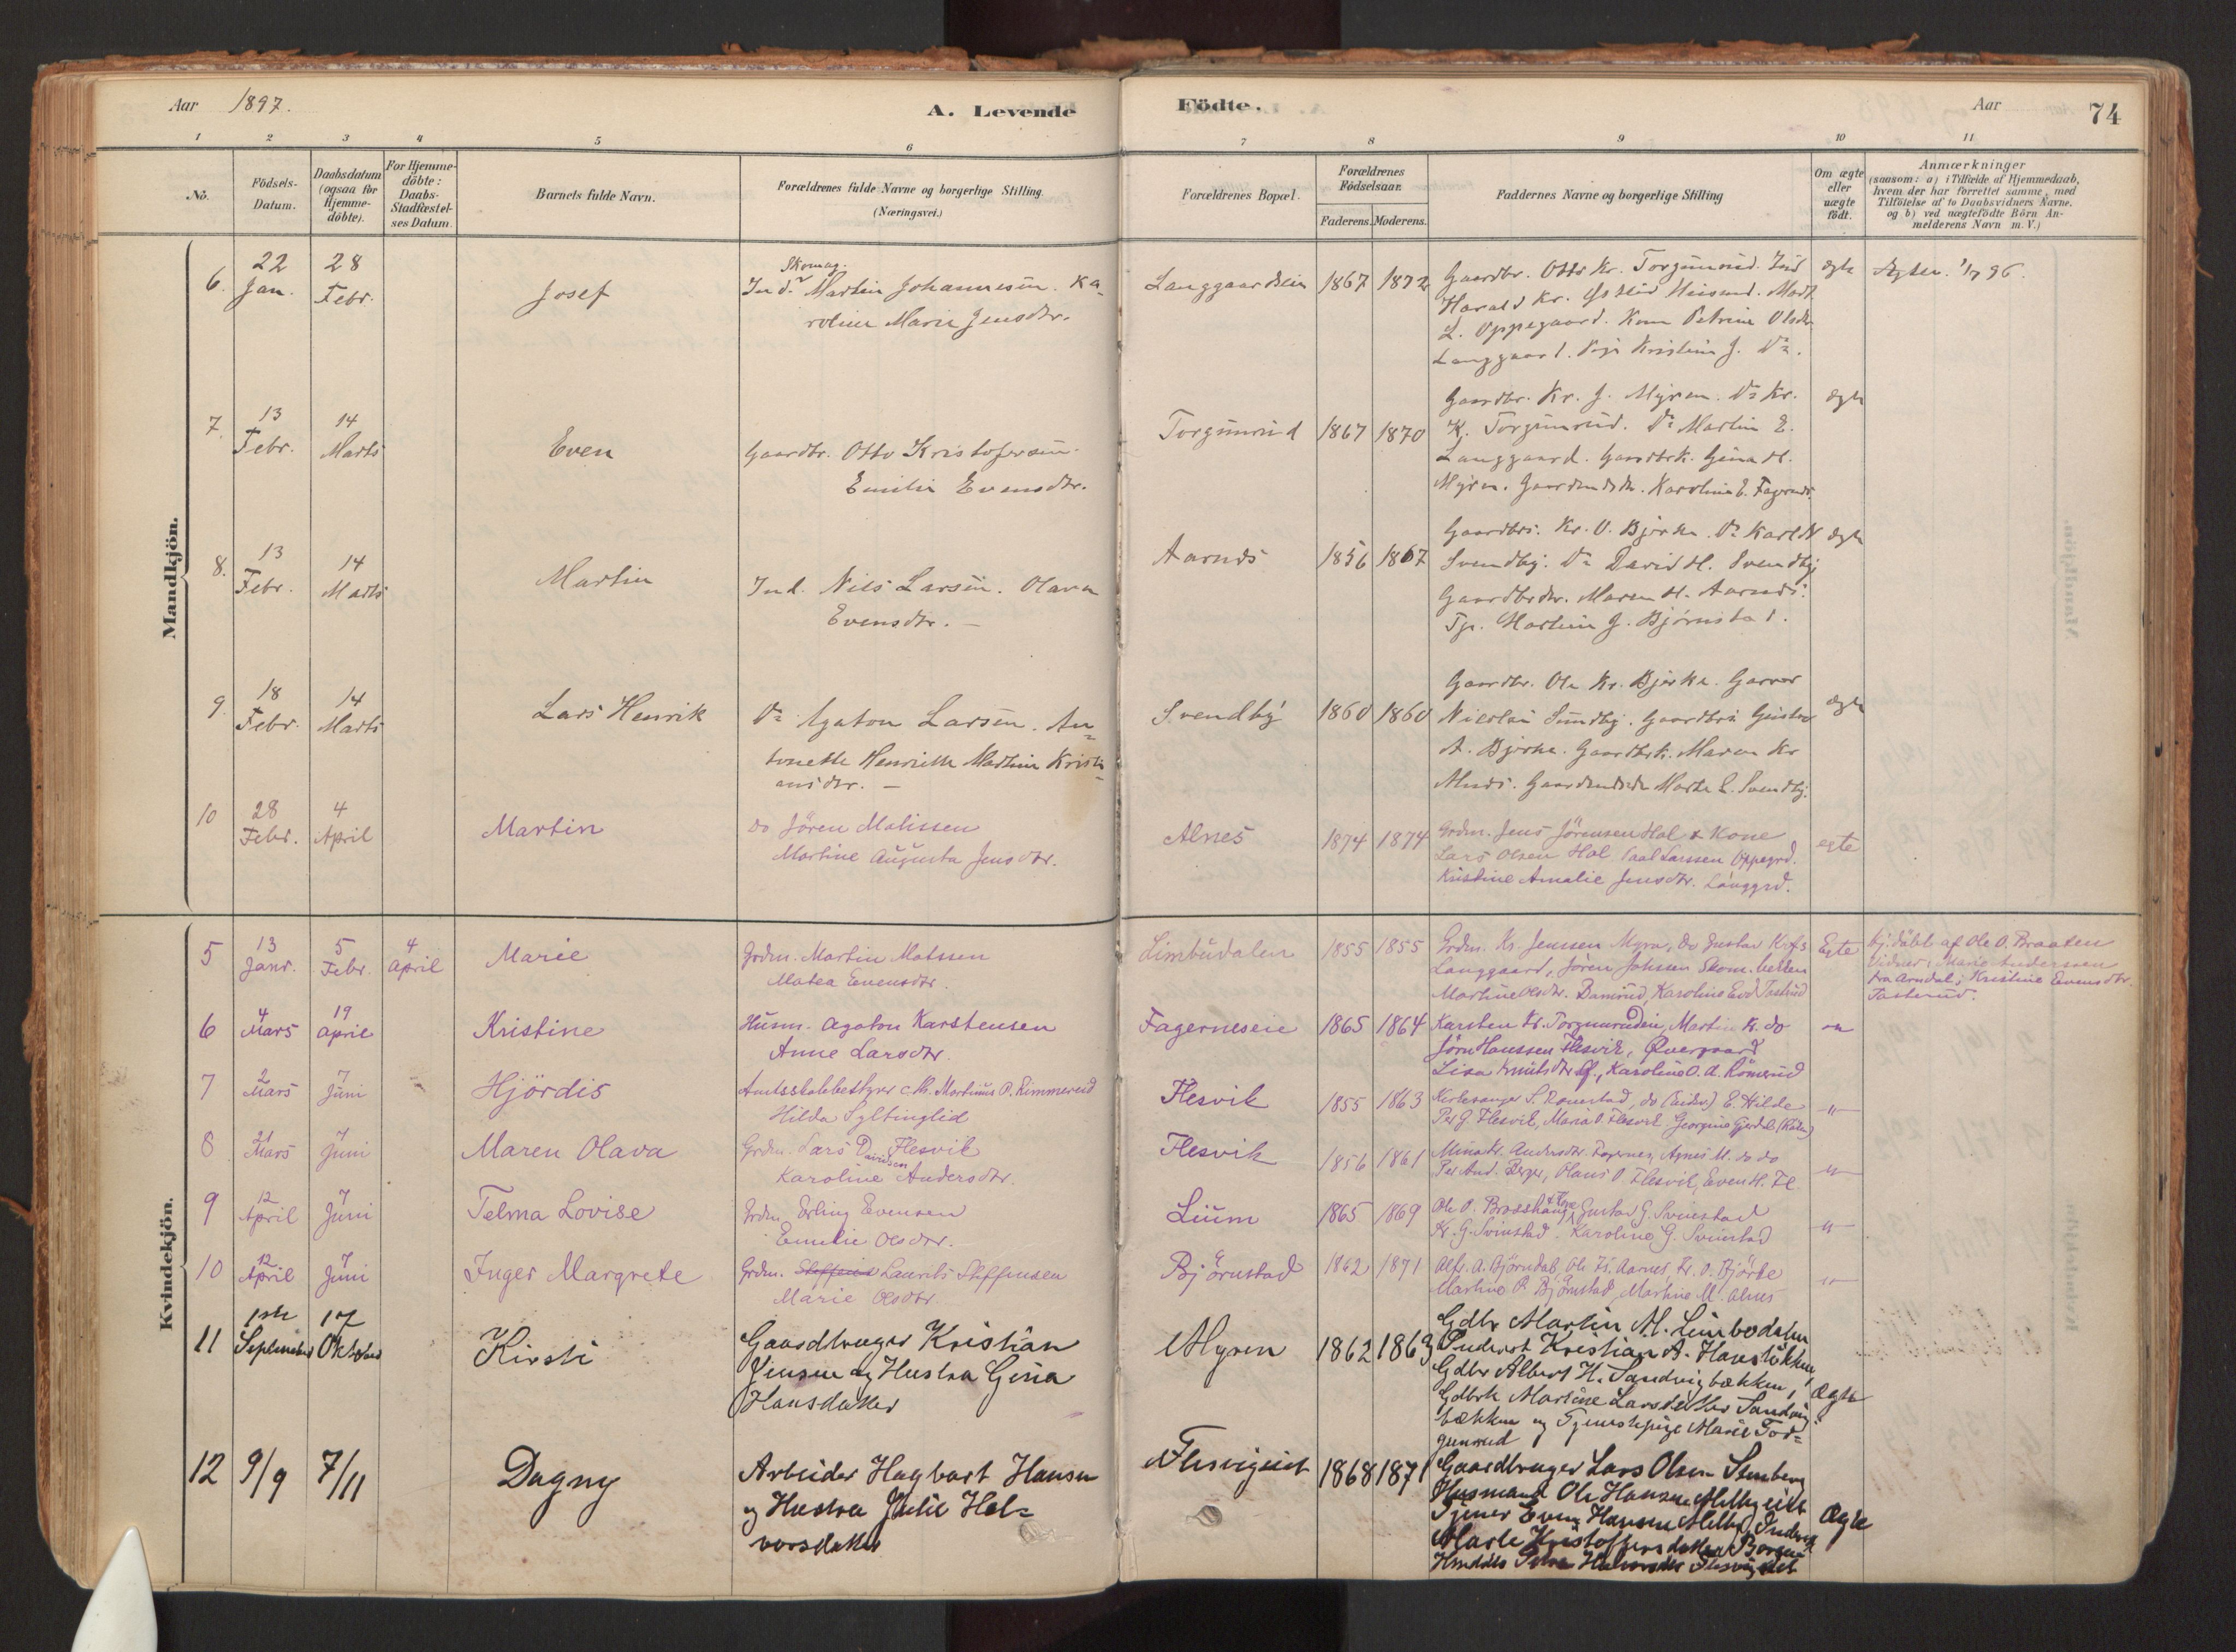 Aar 1897.
A. Levende
Födte.
Aar
74
1 2 3 4 5 6 7 8 9 10 11
No.
Födsels-
Datum.
Daabsdatum
(ogsaa for
Hjemme-
döbte).
For Hjemme-
döbte:
Daabs-
Stadfæstel-
ses Datum.
Barnets fulde Navn.
Forældrenes fulde Navne og borgerlige Stilling
(Næringsvei.)
Forældrenes Bopæl.
Forældrenes
Födselsaar.
Faderens. Moderens.
Faddernes Navne og borgerlige Stilling
Om ægte
eller
uægte
födt.
Anmærkninger
(saasom: a) i Tilfælde af Hjemmedaab,
hvem der har forrettet samme, med
Tilföielse af to Daabsvidners Navne.
og b) ved uægtefödte Börn An-
melderens Navn m. V.)
Mandkjön.
6. 22 Jan. 28 Febr.
Josef
Skomag.
Ind. Martin Johannesen. Ka-
roline Marie Jensdtr.
Langgaardseie 1867 1872
Gaardbr. Otto Kr. Torgunrud. Ind
Harald Kr.
L. Oppegaard. Kone Petrine Olsdtr
Langgaard. Pige Kristine J. Do.
ægte
7. 13 Febr. 14 Marts
Even
Gaardbr. Otto Kristofersen.
Emilie Evensdtr.
Torgunrud 1867 1870
Gaardbr. Kr. J. Myren. Do Kr.
K. Torgunrud. Do Martin E.
Langgaard. Gaardbrk. Gina H.
Myren. Karoline E. Fagernes.
ægte
8. 13 Febr. 14 Marts
Martin
Ind. Nils Larsen. Olava
Evensdtr. –
Aarnes 1856 1867
Gaardbr. Kr. O. Bjerke. Do Karl N
Svendby. Do David H. Svendby
Gaardbrdtr. Maren H. Aarnes.
Tjp. Martine J. Bjørnstad.
ægte
9. 18 Febr. 14 Marts
Lars Henrik
Do Agaton Larsen. An-
tonette Henriette Martine Kristi-
ansdtr. –
Svendby 1860 1860
Gaardbr. Ole Kr. Bjerke. Garver
Nicolai Sundby. Gaardbr. Gustav
A. Bjerke. Gaardbrk. Maren Kr
Alnes. Marte L. Svendby.
ægte
10 28 Febr. 4 April
Martin
do Jören Matissen
Martine Augusta Jensdtr.
Alnes 1874 1874
Grdm. Jens Jörensen Hol & Kone
Lars Olsen Hol Paal Larssen Oppegrd.
Kristine Amalie Jensdtr. Langgrd.
egte
Kvindekjön.
5 13 Janr. 5 Febr. 4 April
Marie
Grdm. Martin Matssen
Matea Evensdtr.
Limbudalen 1855 1855
Grdm. Kr. Jenssen Myra, do Gustav Krfs
Langgaard, Jören Johssen Skom.bekken
Martine Olsdtr. Ramsrud, Karoline Evd Tasterud
Egte
hj. döbt af Ole O. Braaten
Vidner: Marie Anderssen
fra Arndal; Kristine Evensdtr.
Tasterud.
6 4 Mars 19 April
Kristine
Husm. Agaton Karstensen
Anne Larsdtr.
Fagerneseie 1865 1864
Karsten Kr. Torgunrudeie, Martin K. do
Jörn Hanssen Flesvik, Øvergaard
Karoline O. A. Römerud
7 2 Mars 7 Juni
Hjördis
Amtsskolebestyrer c. th. Martinus P. Rimmerud
Hilda Syltinglid
Flesvik 1855 1863
Kirkesanger S. Ronestad, do E. Hilde
Per J. Flesvik, Maria O. Flesvik Georgine Gjerdal
"
8 21 Mars 7 Juni
Maren Olava
Grdm. Lars Davidsen Flesvik
Karoline Andersdtr.
Flesvik 1856 1861
Mina Kr. Andersdtr. Fagernes, Agnes M. do do
Per And. Berger, Olaus O. Flesvik, Even H. Fl.
"
9 12 April 7 Juni
Telma Lovise
Grdm. Erling Evensen
Emilie Olsdtr.
Lium 1865 1869
Ole O. Brosshaug & Kone Gustav G. Svinestad
Kr. G. Svinstad. Karoline G. Svinstad
"
10 12 April 7 Juni
Inger Margrete
Grdm. Laurits Steffensen
Marie Olsdtr.
Björnstad 1862 1871
Alfr. A. Björndal, Ole Kr. Aarnes, Kr. O. Björke
Martine P. Björnstad, Martine M. Alnes
"
11 1ste September 17 Oktober
Kirsti
Gaardbruger Kristian
Jensen og Hustru Gina
Hansdatter
Myren 1862 1863
Gdbr Martin M. Limbodalen
Inderst Kristian A. Hanslökken,
Gdbr Albert H. Sandvigbækken,
Gdbrk Martine Larsdatter Sandvig-
bækken og Tjenestepige Marie Tor-
gunrud
Ægte
12 9/9 7/11
Dagny
Arbeider Hagbart Hansen
og Hustru Julie Hal-
vorsdatter
Flesvigeiet 1868 1871
Gaardbruger Lars Olsen Stenberg
Husmand Ole Hansen Melbyeiet
Tjener Even Hansen Melby
Marte Kristoffersdatter
Halvorsdtr Flesvigeiet
Ægte